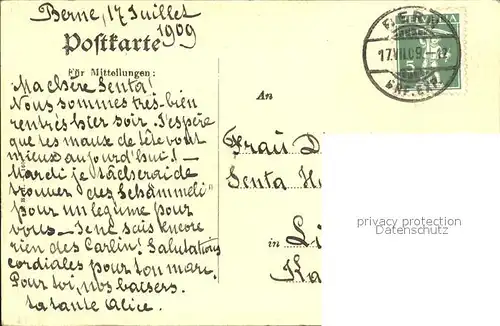 Berne, 17 Juillet
1909
Postkarte
Für Mitteilungen:
Ma chère Senta!
Nous sommes très-bien
rentrés hier soir. J'espère
que tes maux de tête vont
mieux aujourd'hui! —
Mardi je tâcherai de
trouver des Schämmeli
pour un legume pour
vous — Je ne sais encore
rien des Carlin! Salutations
cordiales pour ton mari.
Pour toi, nos baisers.
ta tante Alice.
BERN
17.VII.09.
An
Frau D
Senta H
in Li
Ka
privacy protection
Datenschutz